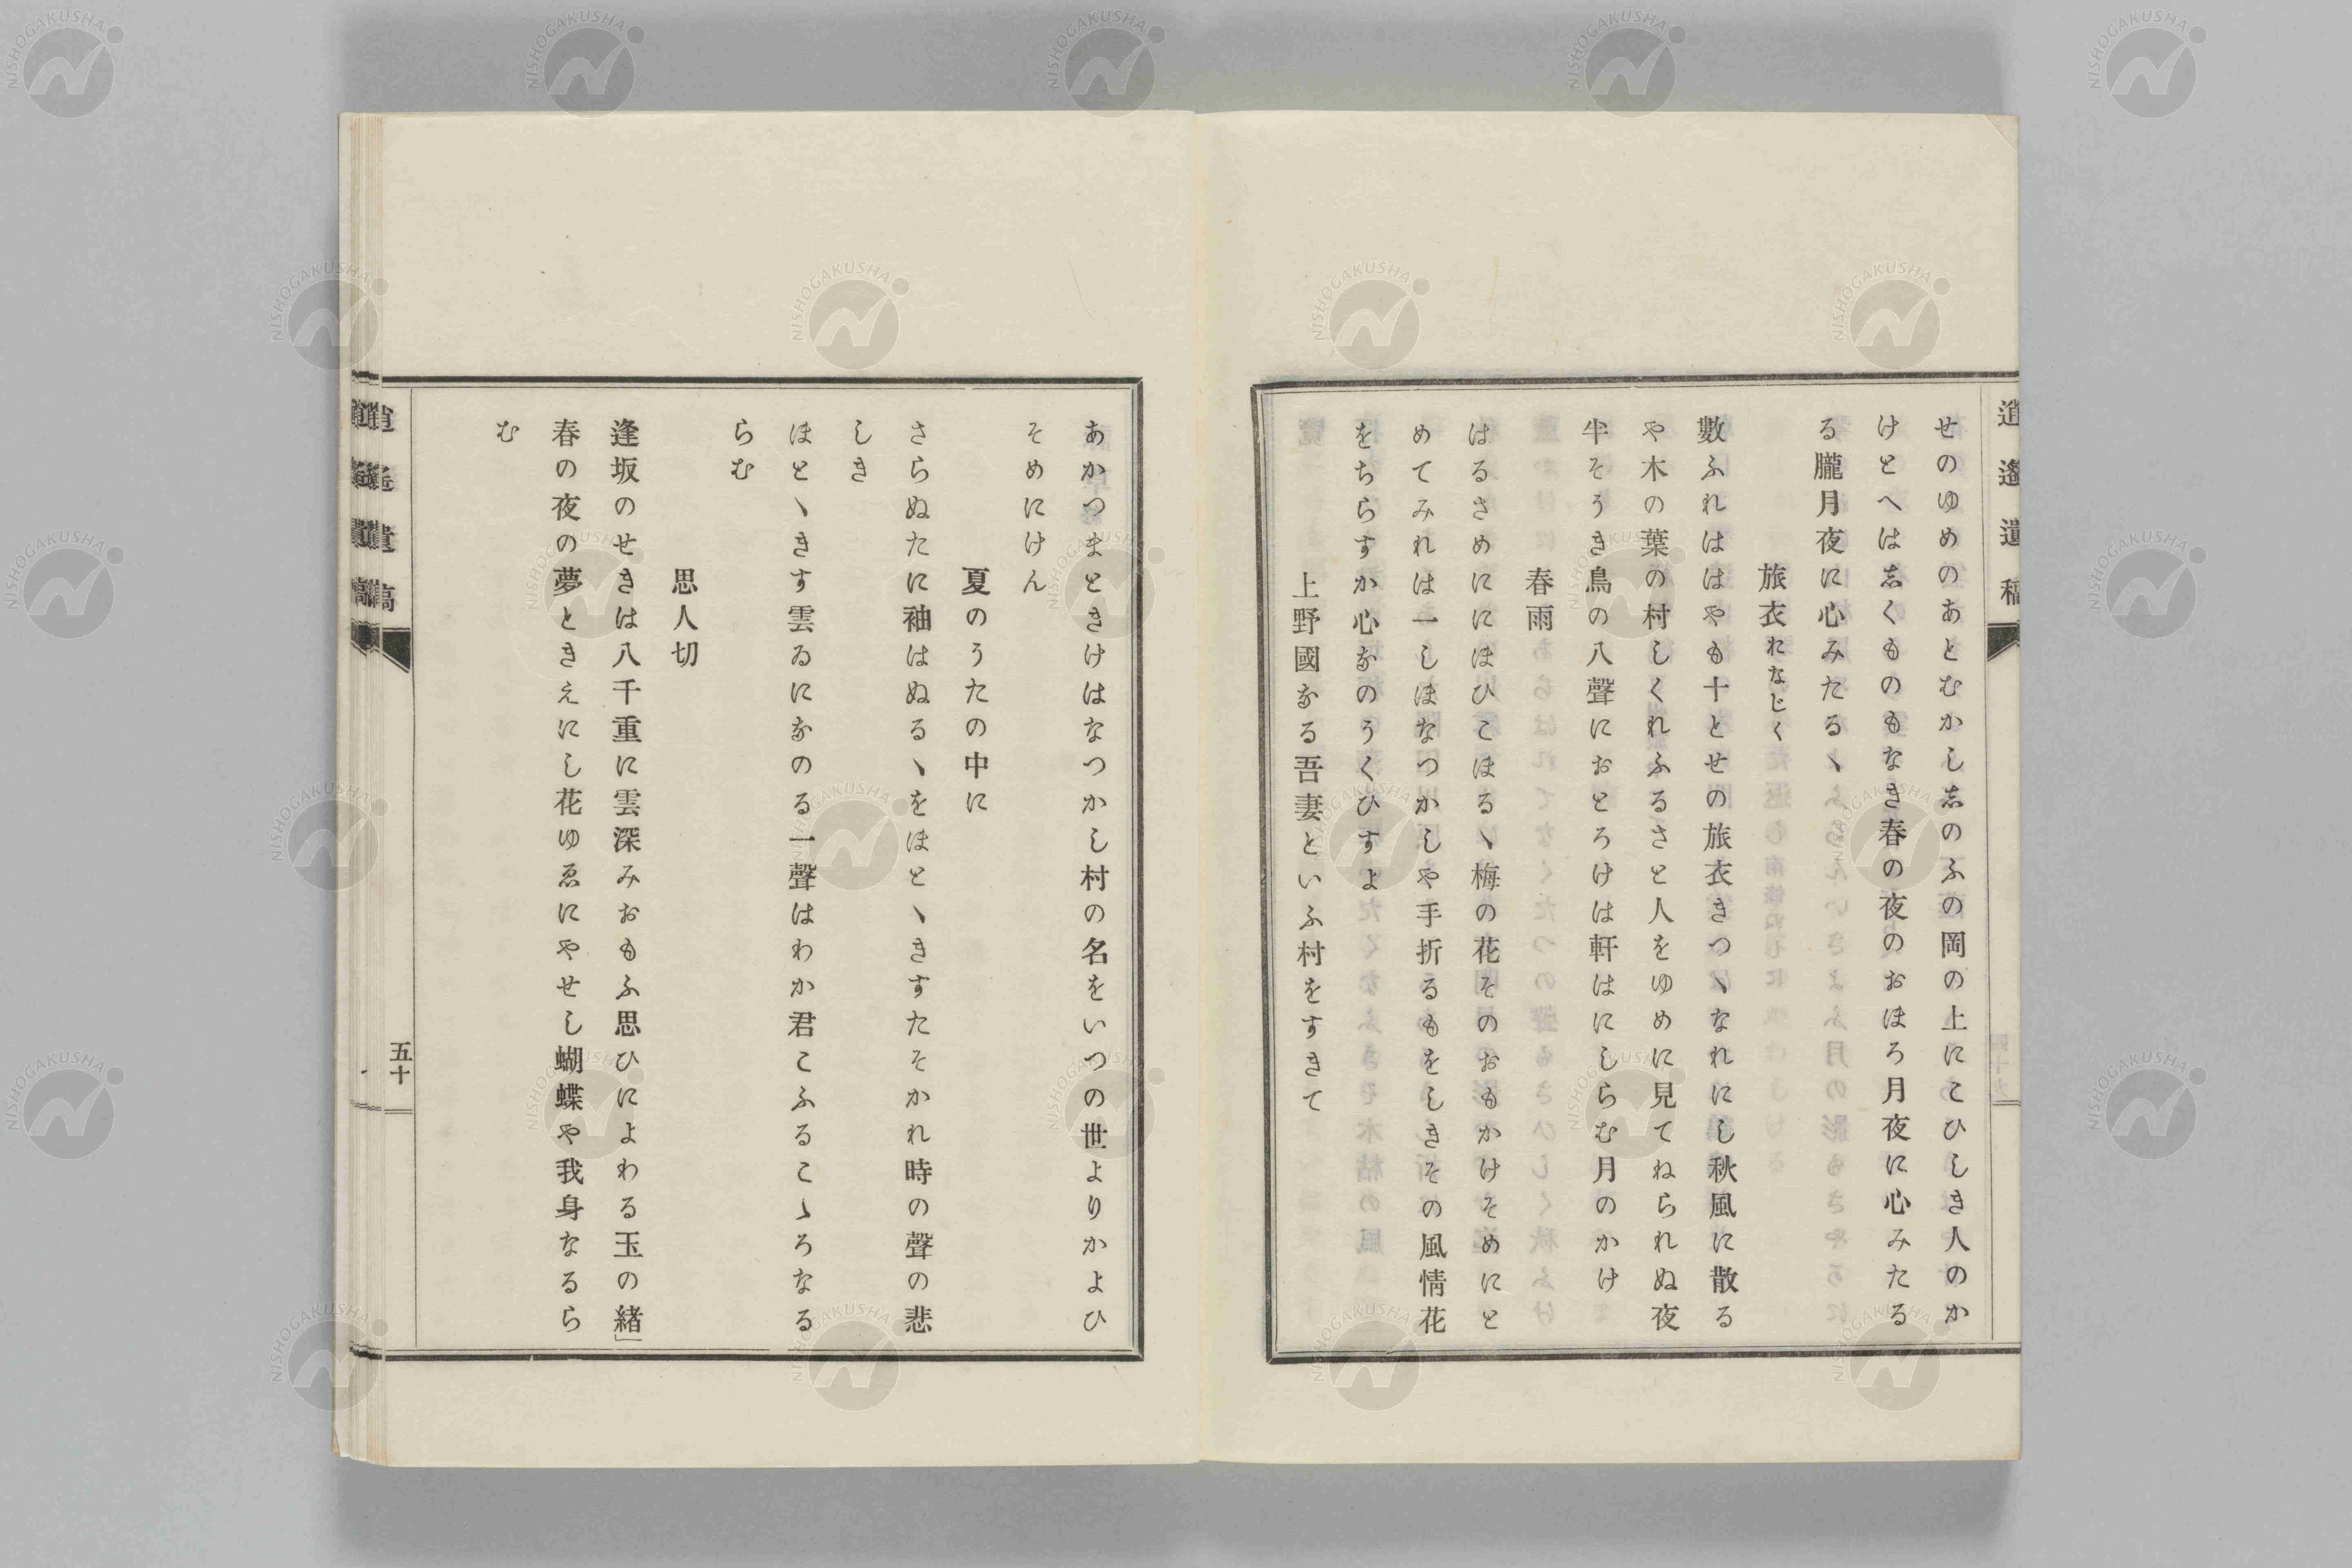 逍遙遺稿
せのゆめのあとむかし志のふの岡の上にこひしき人のか
けとへは志くものもなき春の夜のおほろ月夜に心みたる
る朧月夜に心みたるヽ
旅衣れなじく
數ふれははやも十とせの旅衣きつヽなれにし秋風に散る
や木の葉の村しくれふるさと人をゆめに見てねられぬ夜
半そうき鳥の八聲におとろけは軒はにしらむ月のかけ
春雨
はるさめににほひこほるヽ梅の花そのおもかけそめにと
めてみれは一しほなつかしや手折るもをしきその風情花
をちらすか心なのうくひすよ
上野國なる吾妻といふ村をすきて
あかつまときけはなつかし村の名をいつの世よりかよひ
そめにけん
夏のうたの中に
さらぬたに袖はぬるヽをほとヽきすたそかれ時の聲の悲
しき
ほとヽきす雲ゐになのる一聲はわか君こふるこゝろなる
らむ
思人切
逢坂のせきは八千重に雲深みおもふ思ひによわる玉の緒」
春の夜の夢ときえにし花ゆゑにやせし蝴蝶や我身なるら
む
五十
NISHOGAKUSHA